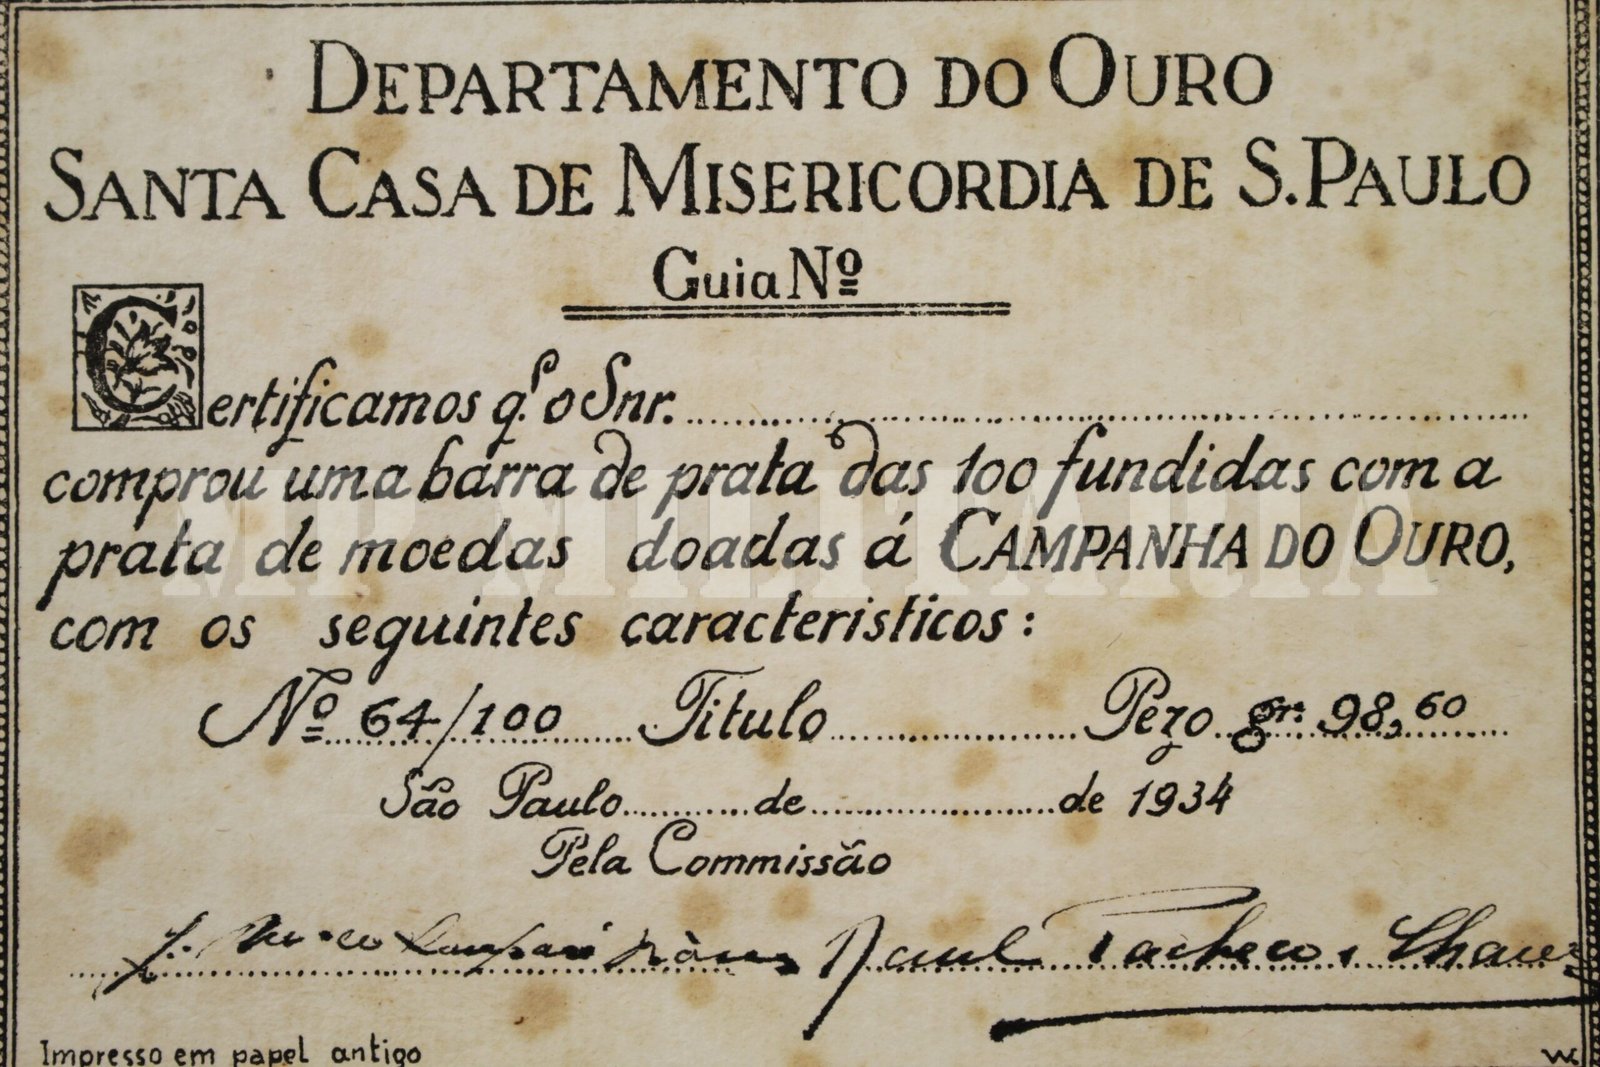 DEPARTAMENTO DO OURO
SANTA CASA DE MISERICORDIA DE S. PAULO
Guia Nº
Certificamos q.e o Snr.
comprou uma barra de prata das 100 fundidas com a
prata de moedas doadas á CAMPANHA DO OURO,
com os seguintes caracteristicos:
Nº 64/100 Titulo Pezo grs. 98,60
São Paulo de de 1934
Pela Commissão
Raul Pacheco e Chaves
Impresso em papel antigo
MP MILITARIA